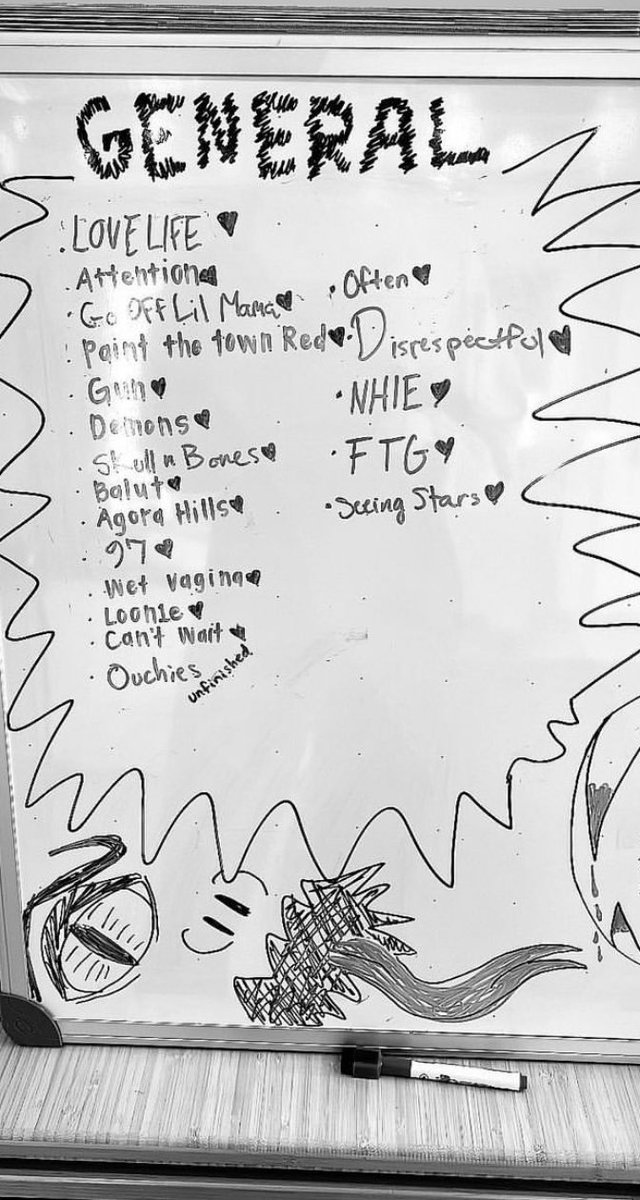 GENERAL
LOVE LIFE
Attention
Go Off Lil Mama
Paint the town Red
Gun
Demons
Skull n Bones
Balut
Agora Hills
97
Wet Vagina
Loonie
Can't Wait
Ouchies
unfinished
Often
Disrespectful
NHIE
FTG
Seeing Stars